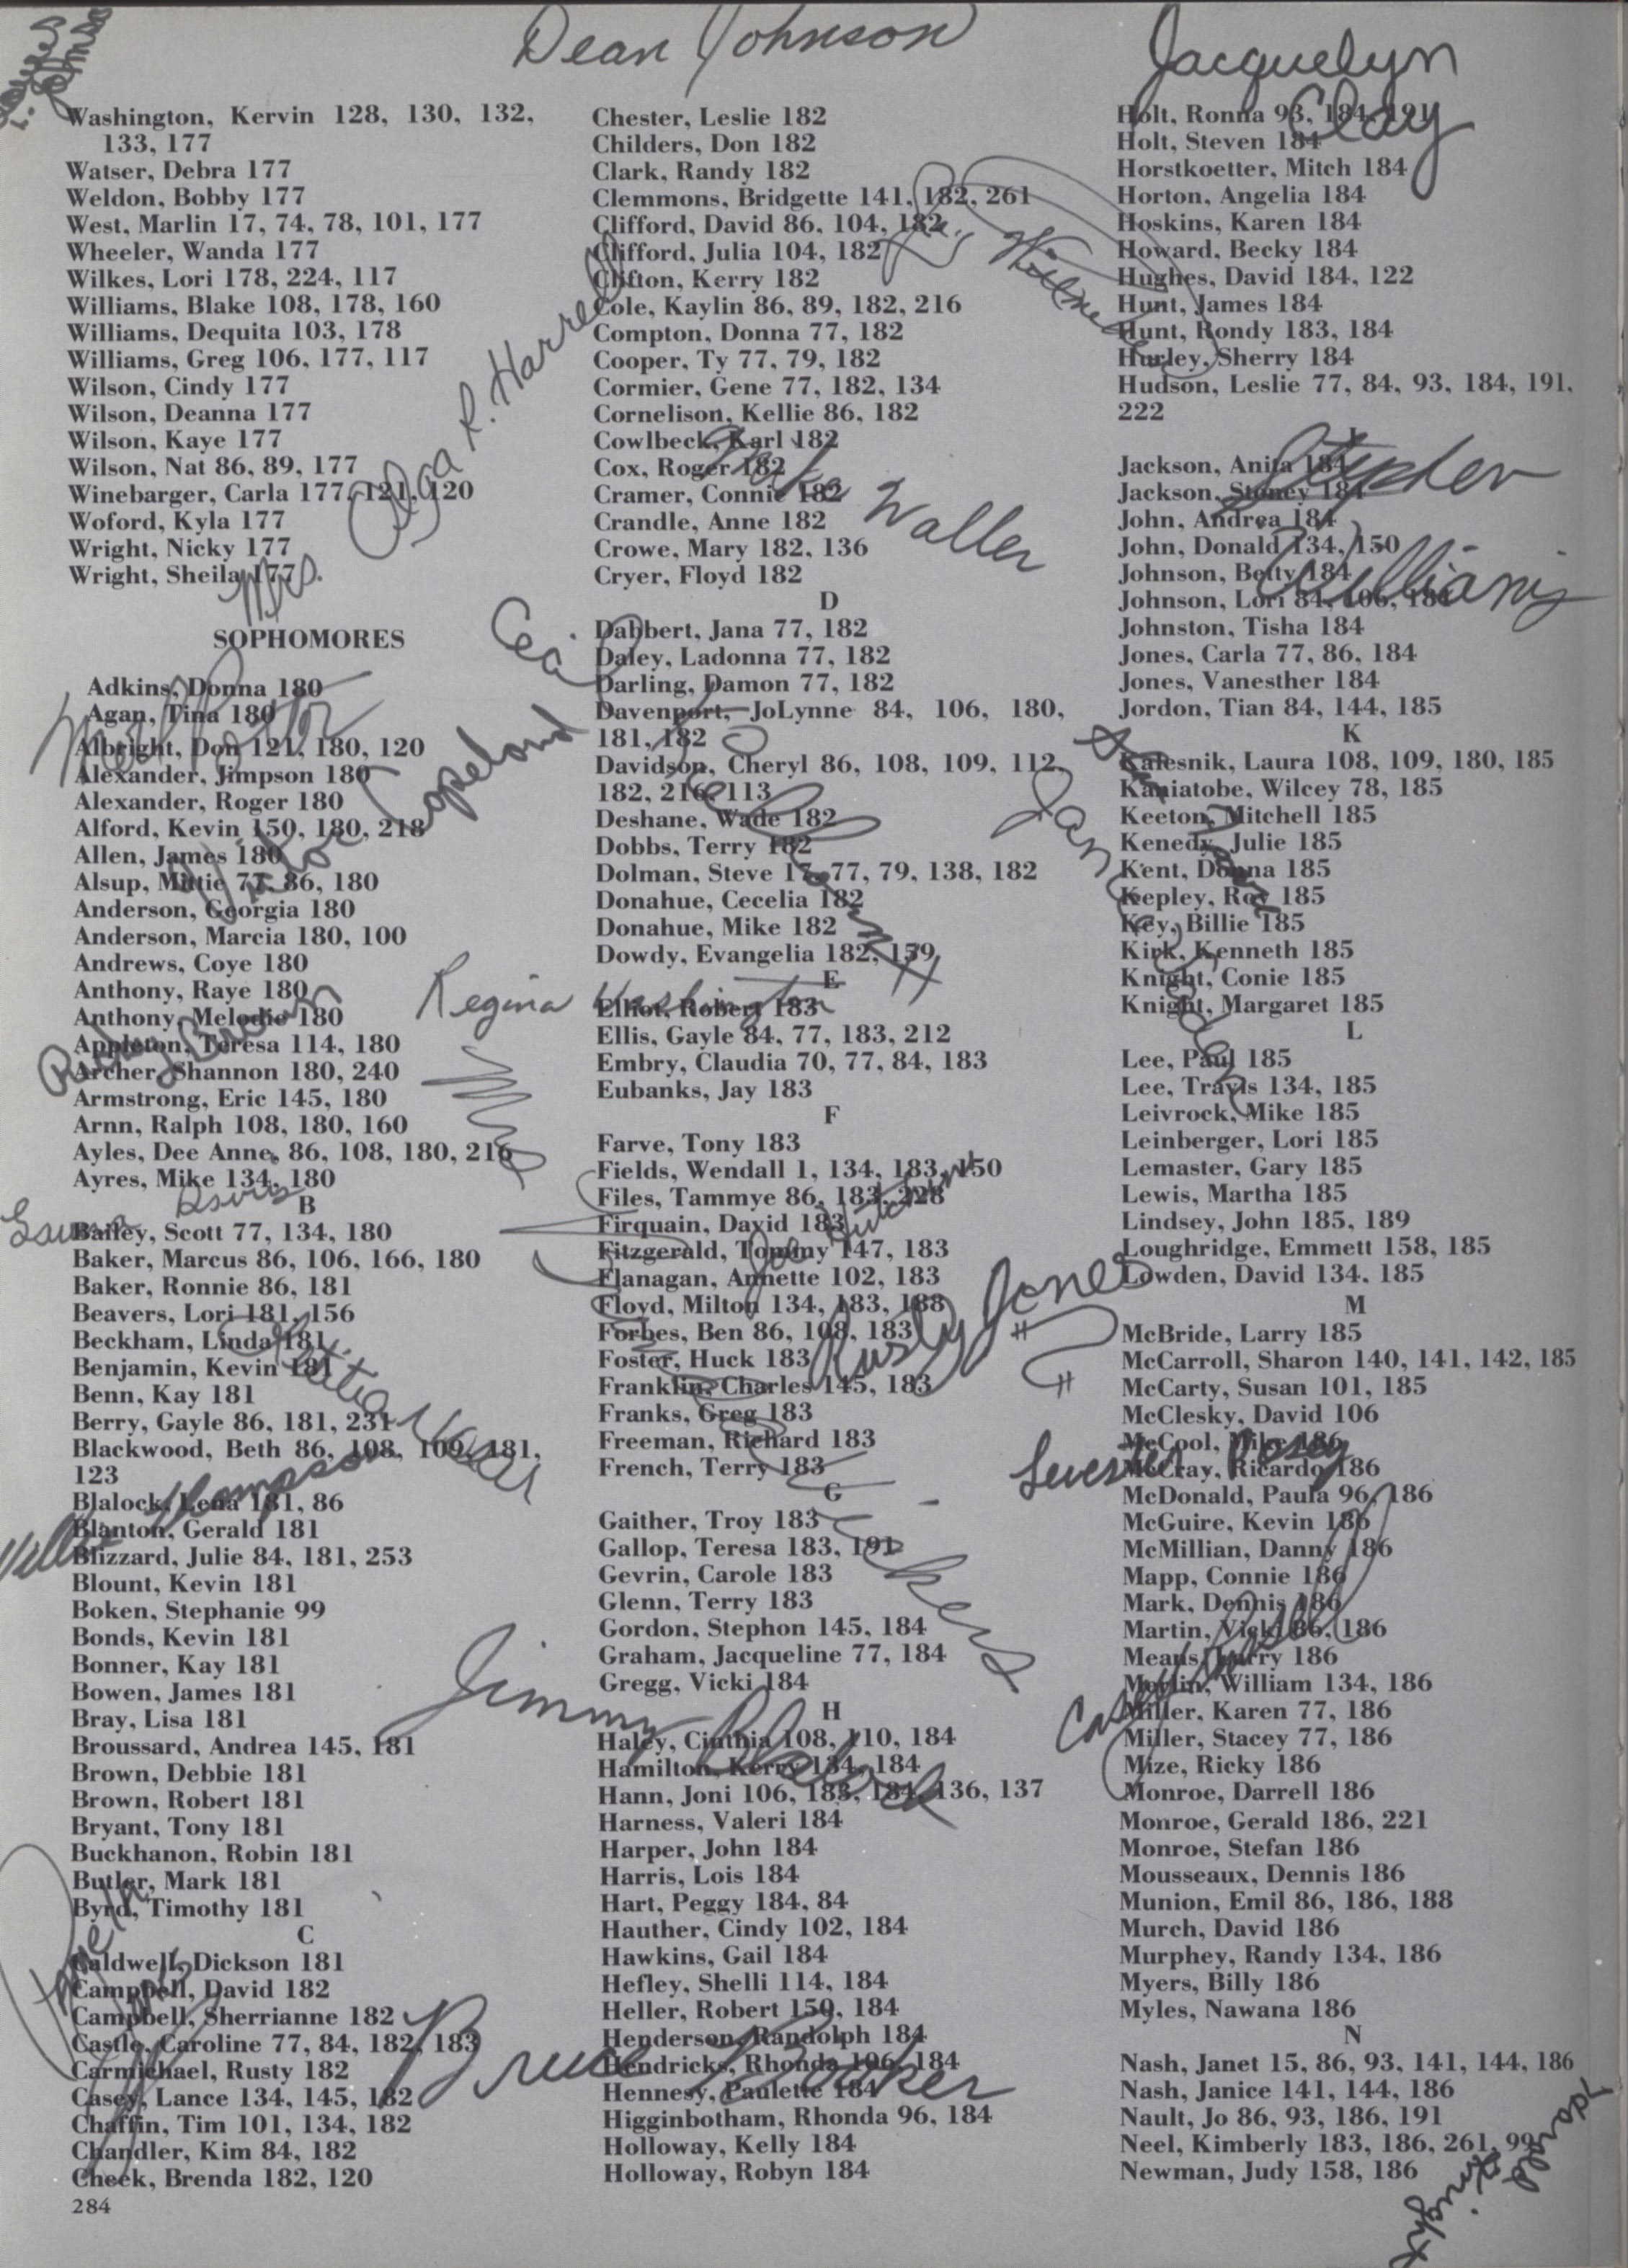 Dean Johnson
Jacquelyn
Clay
Washington, Kervin 128, 130, 132,
133, 177
Watser, Debra 177
Weldon, Bobby 177
West, Marlin 17, 74, 78, 101, 177
Wheeler, Wanda 177
Wilkes, Lori 178, 224, 117
Williams, Blake 108, 178, 160
Williams, Dequita 103, 178
Williams, Greg 106, 177, 117
Wilson, Cindy 177
Wilson, Deanna 177
Wilson, Kaye 177
Wilson, Nat 86, 89, 177
Winebarger, Carla 177, 121, 120
Woford, Kyla 177
Wright, Nicky 177
Wright, Sheila 177
Mrs. Olga R. Harrell
SOPHOMORES
Adkins, Donna 180
Agan, Tina 180
Albright, Don 121, 180, 120
Alexander, Jimpson 180
Alexander, Roger 180
Alford, Kevin 150, 180, 218
Allen, James 180
Alsup, Mittie 77, 86, 180
Anderson, Georgia 180
Anderson, Marcia 180, 100
Andrews, Coye 180
Anthony, Raye 180
Anthony, Melodie 180
Appleton, Teresa 114, 180
Archer, Shannon 180, 240
Armstrong, Eric 145, 180
Arnn, Ralph 108, 180, 160
Ayles, Dee Anne, 86, 108, 180, 216
Ayres, Mike 134, 180
Victor Copeland
Ricky Brown
Regina Washington
Davis
B
Bailey, Scott 77, 134, 180
Baker, Marcus 86, 106, 166, 180
Baker, Ronnie 86, 181
Beavers, Lori 181, 156
Beckham, Linda 181
Benjamin, Kevin 181
Benn, Kay 181
Berry, Gayle 86, 181, 231
Blackwood, Beth 86, 108, 109, 181,
123
Blalock, Lena 181, 86
Blanton, Gerald 181
Blizzard, Julie 84, 181, 253
Blount, Kevin 181
Boken, Stephanie 99
Bonds, Kevin 181
Bonner, Kay 181
Bowen, James 181
Bray, Lisa 181
Broussard, Andrea 145, 181
Brown, Debbie 181
Brown, Robert 181
Bryant, Tony 181
Buckhanon, Robin 181
Butler, Mark 181
Byrd, Timothy 181
Willie Thompson
C
Caldwell, Dickson 181
Campbell, David 182
Campbell, Sherrianne 182
Castle, Caroline 77, 84, 182, 183
Carmichael, Rusty 182
Casey, Lance 134, 145, 182
Chaffin, Tim 101, 134, 182
Chandler, Kim 84, 182
Cheek, Brenda 182, 120
284
Chester, Leslie 182
Childers, Don 182
Clark, Randy 182
Clemmons, Bridgette 141, 182, 261
Clifford, David 86, 104, 182
Clifford, Julia 104, 182
Clifton, Kerry 182
Cole, Kaylin 86, 89, 182, 216
Compton, Donna 77, 182
Cooper, Ty 77, 79, 182
Cormier, Gene 77, 182, 134
Cornelison, Kellie 86, 182
Cowlbeck, Karl 182
Cox, Roger 182
Cramer, Connie 182
Crandle, Anne 182
Crowe, Mary 182, 136
Cryer, Floyd 182
Waller
D
Dabbert, Jana 77, 182
Daley, Ladonna 77, 182
Darling, Damon 77, 182
Davenport, JoLynne 84, 106, 180,
181, 182
Davidson, Cheryl 86, 108, 109, 112,
182, 216, 113
Deshane, Wade 182
Dobbs, Terry 182
Dolman, Steve 17, 77, 79, 138, 182
Donahue, Cecelia 182
Donahue, Mike 182
Dowdy, Evangelia 182, 159
E
Elliot, Robert 183
Ellis, Gayle 84, 77, 183, 212
Embry, Claudia 70, 77, 84, 183
Eubanks, Jay 183
F
Farve, Tony 183
Fields, Wendall 1, 134, 183, 150
Files, Tammye 86, 183, 228
Firquain, David 183
Fitzgerald, Tommy 147, 183
Flanagan, Annette 102, 183
Floyd, Milton 134, 183, 188
Forbes, Ben 86, 108, 183
Foster, Huck 183
Franklin, Charles 145, 183
Franks, Greg 183
Freeman, Richard 183
French, Terry 183
Rusty Jones
G
Gaither, Troy 183
Gallop, Teresa 183, 191
Gevrin, Carole 183
Glenn, Terry 183
Gordon, Stephon 145, 184
Graham, Jacqueline 77, 184
Gregg, Vicki 184
Jimmy Blalock
H
Haley, Cinthia 108, 110, 184
Hamilton, Kerry 134, 184
Hann, Joni 106, 183, 184, 136, 137
Harness, Valeri 184
Harper, John 184
Harris, Lois 184
Hart, Peggy 184, 84
Hauther, Cindy 102, 184
Hawkins, Gail 184
Hefley, Shelli 114, 184
Heller, Robert 150, 184
Henderson, Randolph 184
Hendricks, Rhonda 106, 184
Hennesy, Paulette 184
Higginbotham, Rhonda 96, 184
Holloway, Kelly 184
Holloway, Robyn 184
Bruce Booker
Holt, Ronna 93, 184, 191
Holt, Steven 184
Horstkoetter, Mitch 184
Horton, Angelia 184
Hoskins, Karen 184
Howard, Becky 184
Hughes, David 184, 122
Hunt, James 184
Hunt, Rondy 183, 184
Hurley, Sherry 184
Hudson, Leslie 77, 84, 93, 184, 191,
222
J
Jackson, Anita 184
Jackson, Stoney 184
John, Andrea 184
John, Donald 134, 150
Johnson, Betty 184
Johnson, Lori 84, 106, 184
Johnston, Tisha 184
Jones, Carla 77, 86, 184
Jones, Vanesther 184
Jordon, Tian 84, 144, 185
Stephen
Williams
K
Kalesnik, Laura 108, 109, 180, 185
Kaniatobe, Wilcey 78, 185
Keeton, Mitchell 185
Kenedy, Julie 185
Kent, Donna 185
Kepley, Roy 185
Key, Billie 185
Kirk, Kenneth 185
Knight, Conie 185
Knight, Margaret 185
L
Lee, Paul 185
Lee, Travis 134, 185
Leivrock, Mike 185
Leinberger, Lori 185
Lemaster, Gary 185
Lewis, Martha 185
Lindsey, John 185, 189
Loughridge, Emmett 158, 185
Lowden, David 134, 185
M
McBride, Larry 185
McCarroll, Sharon 140, 141, 142, 185
McCarty, Susan 101, 185
McClesky, David 106
McCool, Mike 186
McCray, Ricardo 186
McDonald, Paula 96, 186
McGuire, Kevin 186
McMillian, Danny 186
Mapp, Connie 186
Mark, Dennis 186
Martin, Vicki 86, 186
Means, Larry 186
Merlin, William 134, 186
Miller, Karen 77, 186
Miller, Stacey 77, 186
Mize, Ricky 186
Monroe, Darrell 186
Monroe, Gerald 186, 221
Monroe, Stefan 186
Mousseaux, Dennis 186
Munion, Emil 86, 186, 188
Murch, David 186
Murphey, Randy 134, 186
Myers, Billy 186
Myles, Nawana 186
Levester Posey
N
Nash, Janet 15, 86, 93, 141, 144, 186
Nash, Janice 141, 144, 186
Nault, Jo 86, 93, 186, 191
Neel, Kimberly 183, 186, 261, 99
Newman, Judy 158, 186